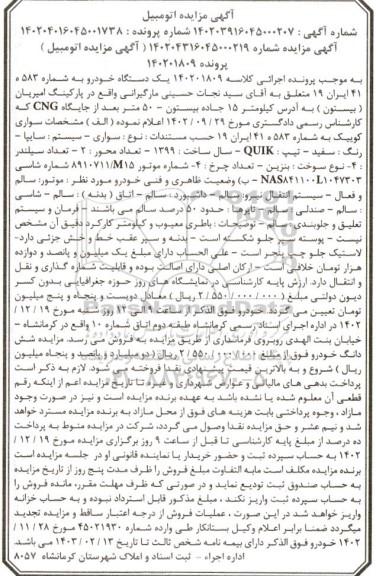 آگهی مزایده اتومبیل
شماره آگهی : ۱۴۰۲۰۳۹۱۶۰۴۵۰۰۰۲۰۷ شماره پرونده : ۱۴۰۲۰۴۰۱۶۰۴۵۰۰۱۷۳۸
آگهی مزایده شماره ۱۴۰۲۰۴۳۱۶۰۴۵۰۰۰۲۱۹ ( آگهی مزایده اتومبیل )
پرونده ۱۴۰۲۰۱۸۰۹
به موجب پرونده اجرائی کلاسه ۱۴۰۲۰۱۸۰۹ یک دستگاه خودرو به شماره ۵۸۳ ه
۴۱ ایران ۱۹ متعلق به آقای سید نجات حسینی مارگیرانی واقع در پارکینگ امیریان
( بیستون ) به آدرس کیلومتر ۱۵ جاده بیستون - ۵۰ متر بعد از جایگاه CNG که
کارشناس رسمی دادگستری مورخ ۱۴۰۲/۰۹/۲۹ اعلام نموده ( الف ) مشخصات سواری
کوییک به شماره ۵۸۳ ه ۴۱ ایران ۱۹ حسب مستندات : نوع : سواری - سیستم : سایپا -
رنگ : سفید - تیپ : QUIK - سال ساخت : ۱۳۹۹ - تعداد محور : ۲ - تعداد سیلندر
: ۴- نوع سوخت : بنزین - تعداد چرخ : ۴- شماره موتور M۱۵/۸۹۱۰۷۱۱ شماره شاسی
NAS۸۴۱۱۰۰L۱۰۴۷۳۰۳ - ب) وضعیت ظاهری و فنی خودرو مورد نظر : موتور: سالم
و فعال - سیستم انتقال نیرو: سالم - داشبورد : سالم - اتاق ( بدنه ) : سالم - شاسی
: سالم - صندلی : سالم - تایرها : حدود ۵۰ درصد سالم می باشند - فرمان و سیستم
تعلیق و جلوبندی : سالم - توضیحات : باطری معیوب و کیلومتر کارکرد دقیق آن مشخص
نیست - پوسته سپر جلو شکسته است - بدنه و سپر عقب خط و خش جزئی دارد-
لاستیک جلو چپ پنچر است - علی الحساب دارای مبلغ یک میلیون و پانصد و دوازده
هزار تومان خلافی است - ارکان اصلی دارای اصالت بوده و قابلیت شماره گذاری و نقل
و انتقال دارد. ارزش پایه کارشناسی در نمایشگاه های روز حوزه جغرافیایی بدون کسر
دیون دولتی مبلغ (۲/۵۵۰/۰۰۰/۰۰۰ ریال ) معادل دویست و پنجاه و پنج میلیون
تومان تعیین می گردد خودرو فوق الذکر از ساعت ۹ الی ۱۲ روز شنبه مورخ ۱۲/۱۹/
۱۴۰۲ در اداره اجرای اسناد رسمی کرمانشاه طبقه دوم اتاق شماره ۱۰ واقع در کرمانشاه -
خیابان بنت الهدی روبروی فرمانداری از طریق مزایده به فروش می رسد. مزایده شش
دانگ خودرو فوق از مبلغ ۲/۵۵۰/۰۰۰/۰۰۰ ریال ( دو میلیارد و پانصد و پنجاه میلیون
ریال ) شروع و به بالاترین قیمت پیشنهادی نقدا فروخته می شود. لازم به ذکر است
پرداخت بدهی های مالیاتی و عوارض شهرداری و غیره تا تاریخ مزایده اعم از اینکه رقم
قطعی آن معلوم شده یا نشده باشد به عهده برنده مزایده است و نیز در صورت وجود
مازاد ، وجوه پرداختی بابت هزینه های فوق از محل مازاد به برنده مزایده مسترد خواهد
شد و نیم عشر و حق مزایده نقدا وصول می گردد، شرکت در مزایده منوط به پرداخت
ده درصد از مبلغ پایه کارشناسی تا قبل از ساعت ۹ روز برگزاری مزایده مورخ ۱۲/۱۹/
۱۴۰۲ به حساب سپرده ثبت و حضور خریدار یا نماینده قانونی او در جلسه مزایده است
برنده مزایده مکلف است مابه التفاوت مبلغ فروش را ظرف مدت پنج روز از تاریخ مزایده
به حساب صندوق ثبت تودیع نماید و در صورتی که ظرف مهلت مقرر، مانده فروش را
به حساب سپرده ثبت واریز نکند ، مبلغ مذکور قابل استرداد نبوده و به حساب خزانه
واریز خواهد شد در این صورت ، عملیات فروش از درجه اعتبار ساقط و مزایده تجدید
میگردد ضمنا برابر اعلام وکیل بستانکار طی وارده شماره ۴۵۰۲۱۹۳۰ مورخ ۱۱/۲۸/
۱۴۰۲ خودرو فوق الذکر دارای بیمه نامه شخص ثالث تا تاریخ ۱۴۰۳/۰۲/۱۳ می باشد.
اداره اجراء - ثبت اسناد و املاک شهرستان کرمانشاه ۸۰۵۷